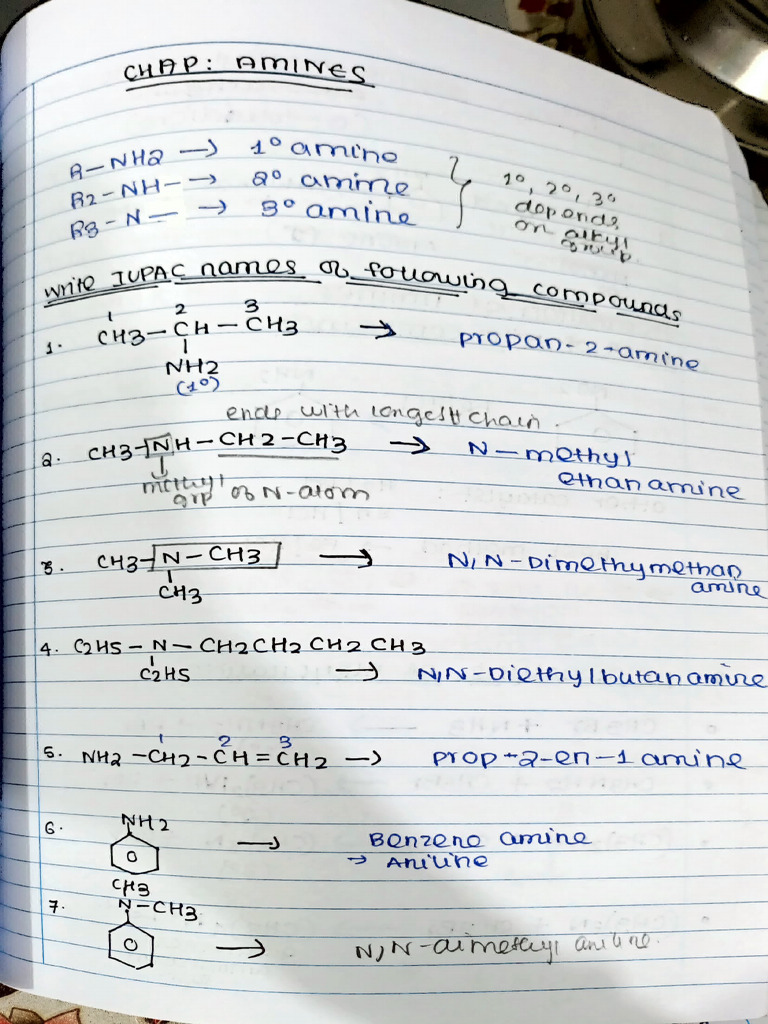 CHAP: AMINES
R-NH2 -> 1° amine
R2-NH- -> 2° amine
R3-N- -> 3° amine
1°, 2°, 3°
depends
on alkyl
group
write IUPAC names of following compounds
1 2 3
1. CH3-CH-CH3 -> propan-2-amine
NH2
(1°)
ends with longest chain.
2. CH3-NH-CH2-CH3 -> N-methyl
ethanamine
methyl
grp of N-atom
3. CH3-N-CH3 -> N,N-Dimethymethan
amine
CH3
4. C2H5-N-CH2CH2CH2CH3
C2H5 -> N,N-Diethylbutanamine
1 2 3
5. NH2-CH2-CH=CH2 -> prop-2-en-1amine
6. NH2
-> Benzene amine
-> Aniline
CH3
7. N-CH3
-> N,N-dimethyl aniline.